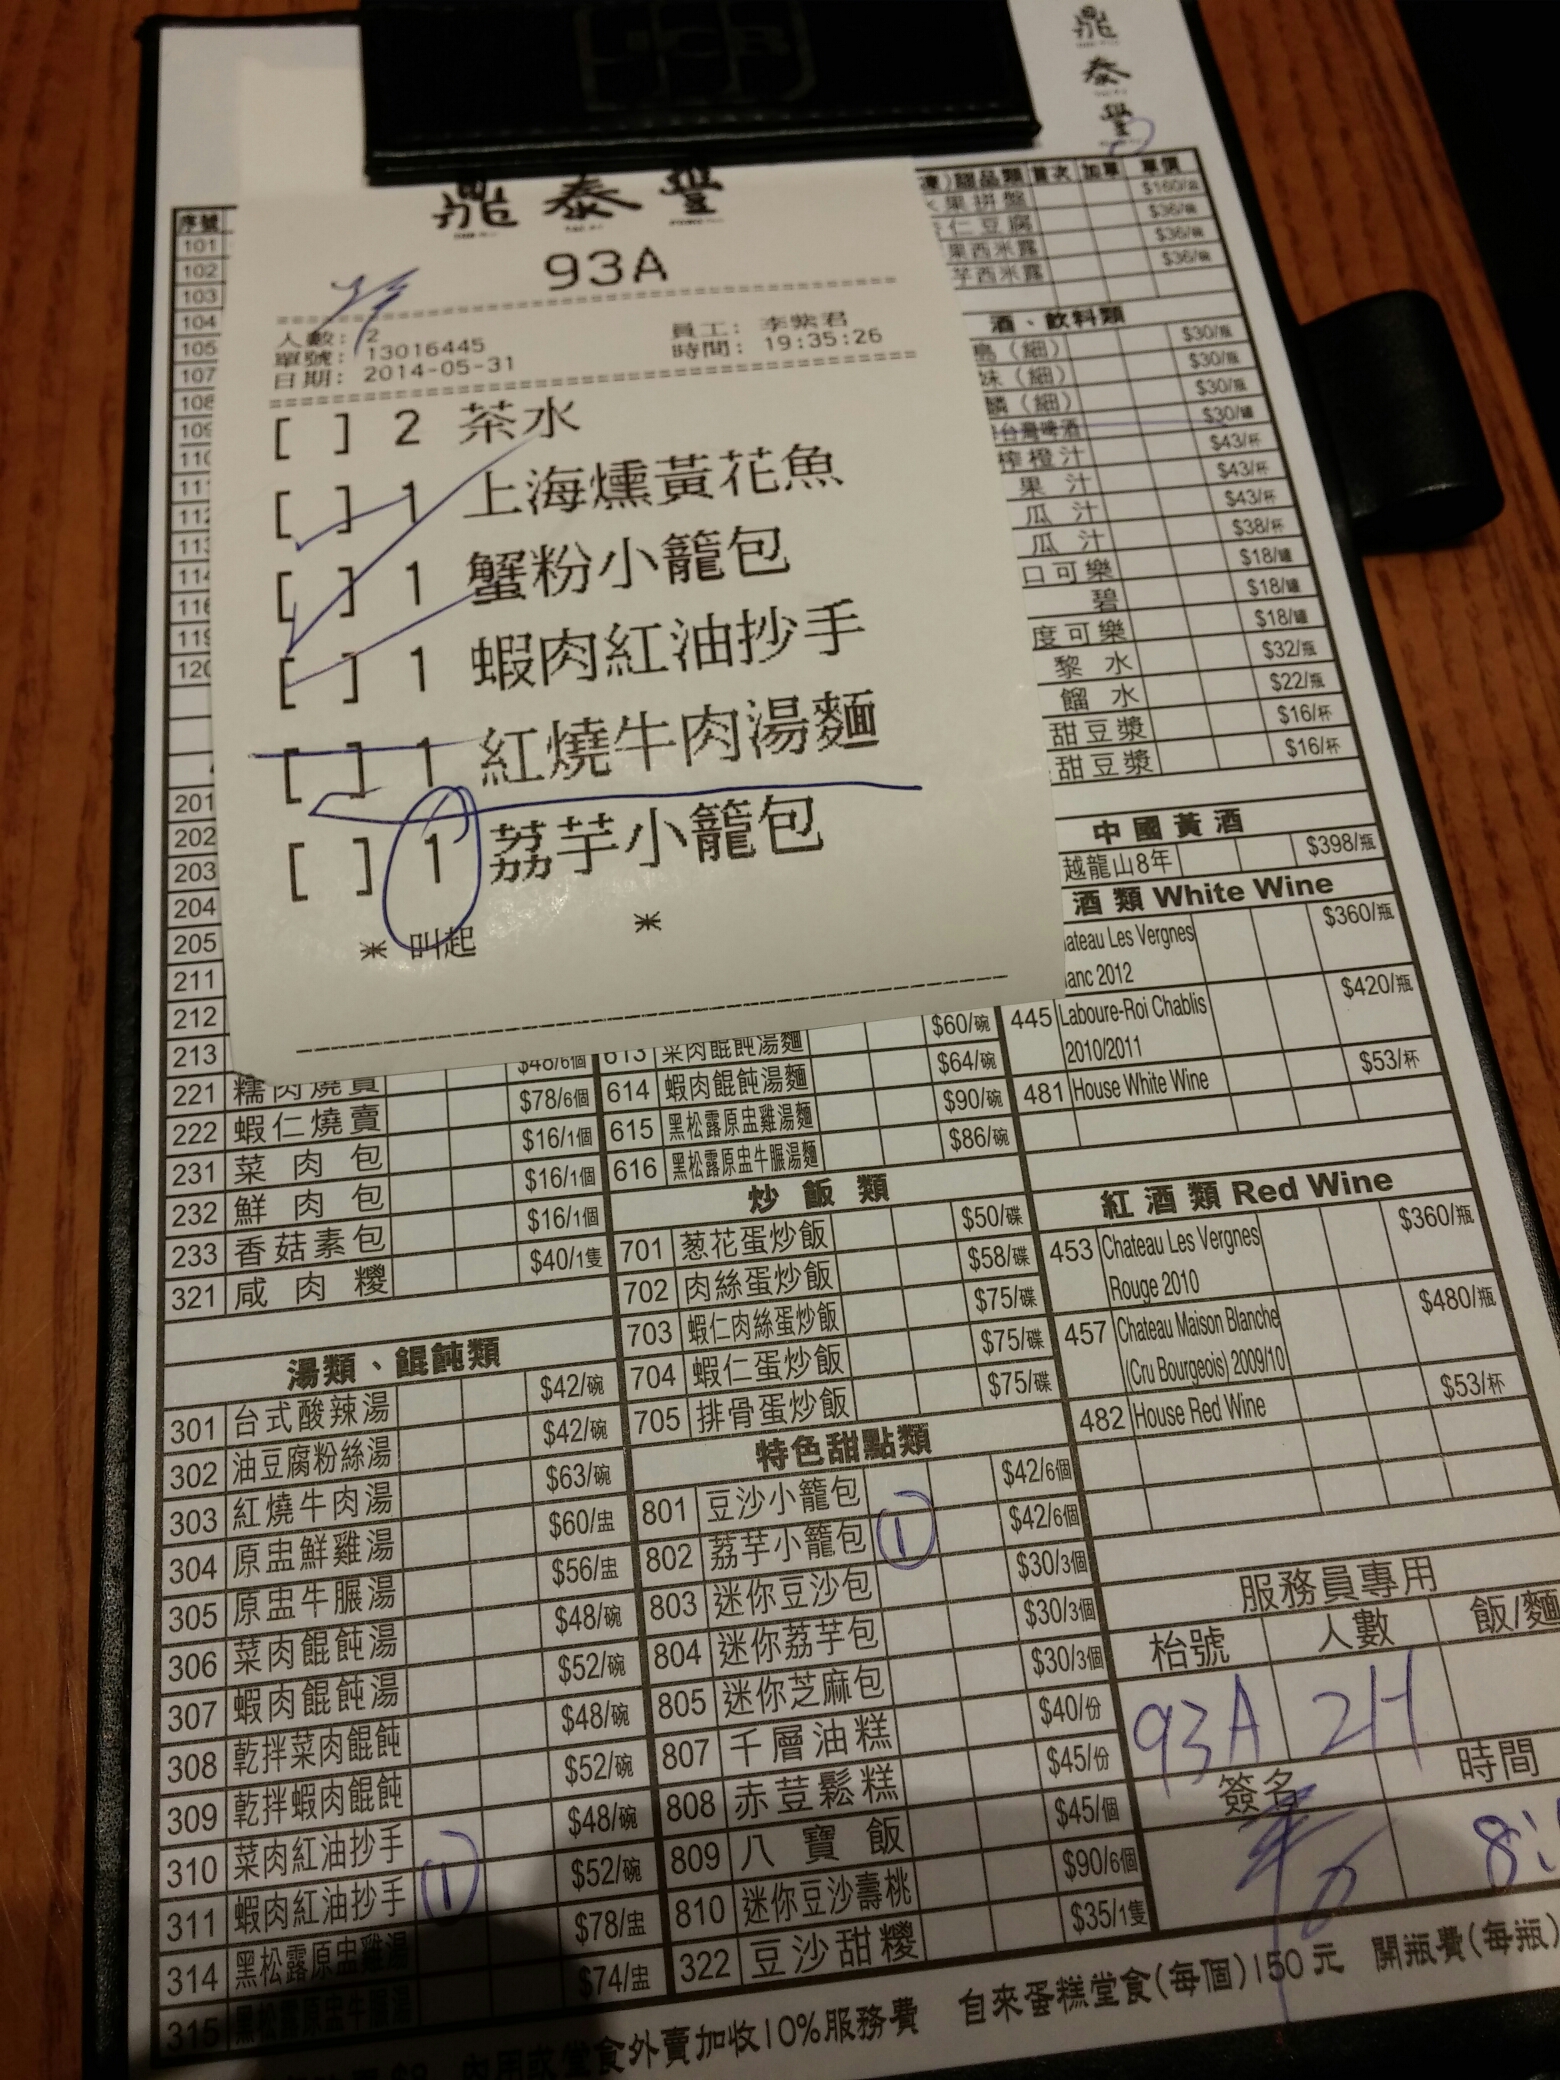 鼎泰豐
鼎泰豐
93A
人數: 2
單號: 13016445
日期: 2014-05-31
員工: 李紫君
時間: 19:35:26
[ ] 2 茶水
[ ] 1 上海燻黃花魚
[ ] 1 蟹粉小籠包
[ ] 1 蝦肉紅油抄手
[ ] 1 紅燒牛肉湯麵
[ ] 1 荔芋小籠包
* 叫起 *
序號
101
102
103
104
105
107
108
109
110
111
112
113
114
116
119
120
201
202
203
204
205
211
212
213 $48/6個
221 糯肉燒賣 $78/6個
222 蝦仁燒賣 $16/1個
231 菜肉包 $16/1個
232 鮮肉包 $16/1個
233 香菇素包 $40/1隻
321 咸肉糭
湯類、餛飩類
301 台式酸辣湯 $42/碗
302 油豆腐粉絲湯 $42/碗
303 紅燒牛肉湯 $63/碗
304 原盅鮮雞湯 $60/盅
305 原盅牛腒湯 $56/盅
306 菜肉餛飩湯 $48/碗
307 蝦肉餛飩湯 $52/碗
308 乾拌菜肉餛飩 $48/碗
309 乾拌蝦肉餛飩 $52/碗
310 菜肉紅油抄手 $48/碗
311 蝦肉紅油抄手 1 $52/碗
314 黑松露原盅雞湯 $78/盅
315 黑松露原盅牛腒湯 $74/盅
$60/碗
613 菜肉餛飩湯麵 $64/碗
614 蝦肉餛飩湯麵 $90/碗
615 黑松露原盅雞湯麵 $86/碗
616 黑松露原盅牛腒湯麵
炒飯類
701 葱花蛋炒飯 $50/碟
702 肉絲蛋炒飯 $58/碟
703 蝦仁肉絲蛋炒飯 $75/碟
704 蝦仁蛋炒飯 $75/碟
705 排骨蛋炒飯 $75/碟
特色甜點類
801 豆沙小籠包 $42/6個
802 荔芋小籠包 1 $42/6個
803 迷你豆沙包 $30/3個
804 迷你荔芋包 $30/3個
805 迷你芝麻包 $30/3個
807 千層油糕 $40/份
808 赤荳鬆糕 $45/份
809 八寶飯 $45/個
810 迷你豆沙壽桃 $90/6個
322 豆沙甜糭 $35/1隻
甜品類 首次 加單 單價
果拼盤 $160/
仁豆腐 $36/碗
果西米露 $36/碗
芋西米露 $36/碗
酒、飲料類
島(細) $30/瓶
妹(細) $30/瓶
麟(細) $30/瓶
台灣啤酒 $30/罐
榨橙汁 $43/杯
果汁 $43/杯
瓜汁 $43/杯
瓜汁 $38/杯
口可樂 $18/罐
碧 $18/罐
度可樂 $18/罐
黎水 $32/瓶
餾水 $22/瓶
甜豆漿 $16/杯
甜豆漿 $16/杯
中國黃酒
越龍山8年 $398/瓶
酒類 White Wine
ateau Les Vergnes $360/瓶
anc 2012
445 Laboure-Roi Chablis $420/瓶
2010/2011
481 House White Wine $53/杯
紅酒類 Red Wine
453 Chateau Les Vergnes $360/瓶
Rouge 2010
457 Chateau Maison Blanche $480/瓶
(Cru Bourgeois) 2009/10
482 House Red Wine $53/杯
服務員專用
枱號 人數 飯/麵
93A 2H
簽名 時間
內用或堂食外賣加收10%服務費 自來蛋糕堂食(每個)150元 開瓶費(每瓶)